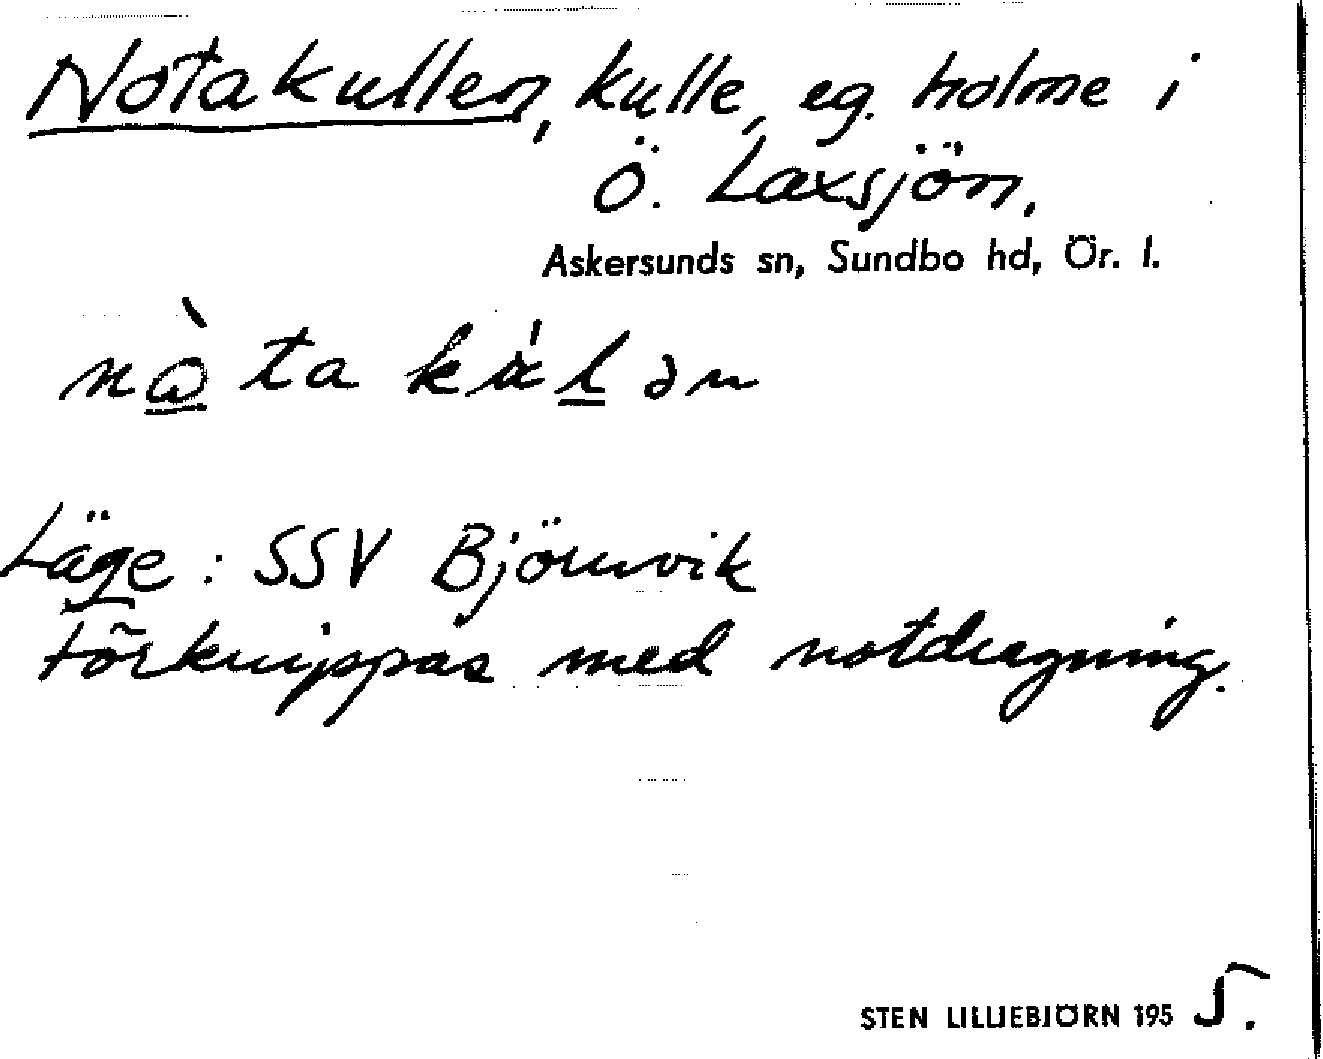 Notakullen, kulle, eg. holme i
Ö. Laxsjön.
Askersunds sn, Sundbo hd, Ör. l.
Läge: SSV Björnvik
Förknippas med notdragning.
STEN LILLIEBJÖRN 195 5.